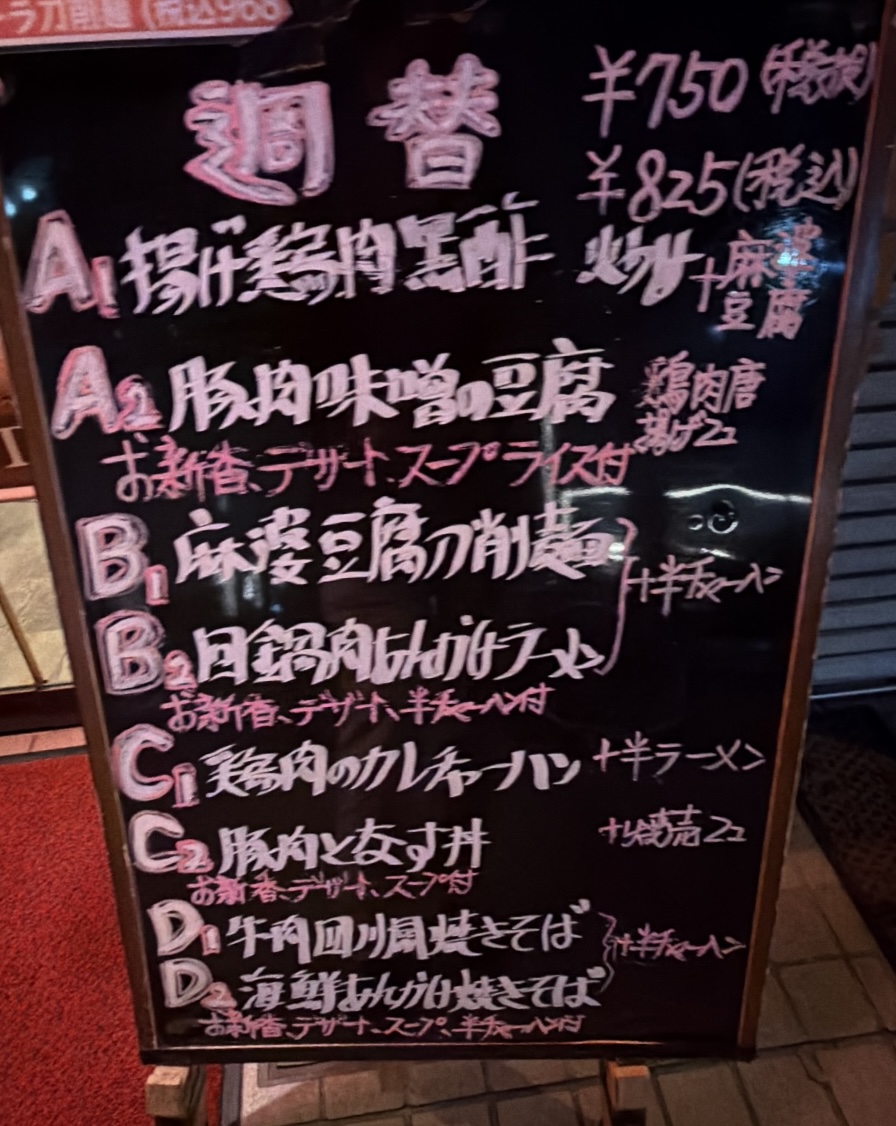 ラ刀削麺(税込968
週替 ¥750(税抜)
¥825(税込)
A1 揚げ鶏肉黒酢炒め+麻婆豆腐
A2 豚肉味噌の豆腐 鶏肉唐揚げ2コ
お新香、デザート、スープライス付
B1 麻婆豆腐刀削麺
+半チャーハン
B2 回鍋肉あんかけラーメン
お新香、デザート、半チャーハン付
C1 鶏肉のカレーチャーハン +半ラーメン
C2 豚肉となす丼 +焼売2コ
お新香、デザート、スープ付
D1 牛肉四川風焼きそば
+半チャーハン
D2 海鮮あんかけ焼きそば
お新香、デザート、スープ、半チャーハン付